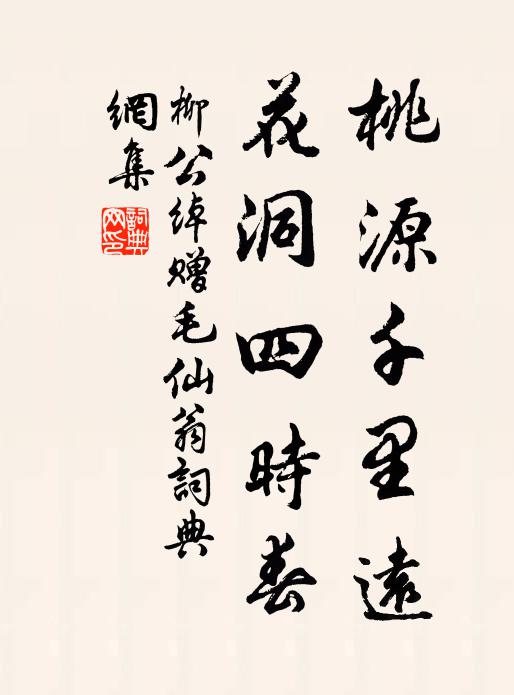 桃源千里遠
花洞四時春
柳公綽贈毛仙翁詞典
網集
詞典
网印